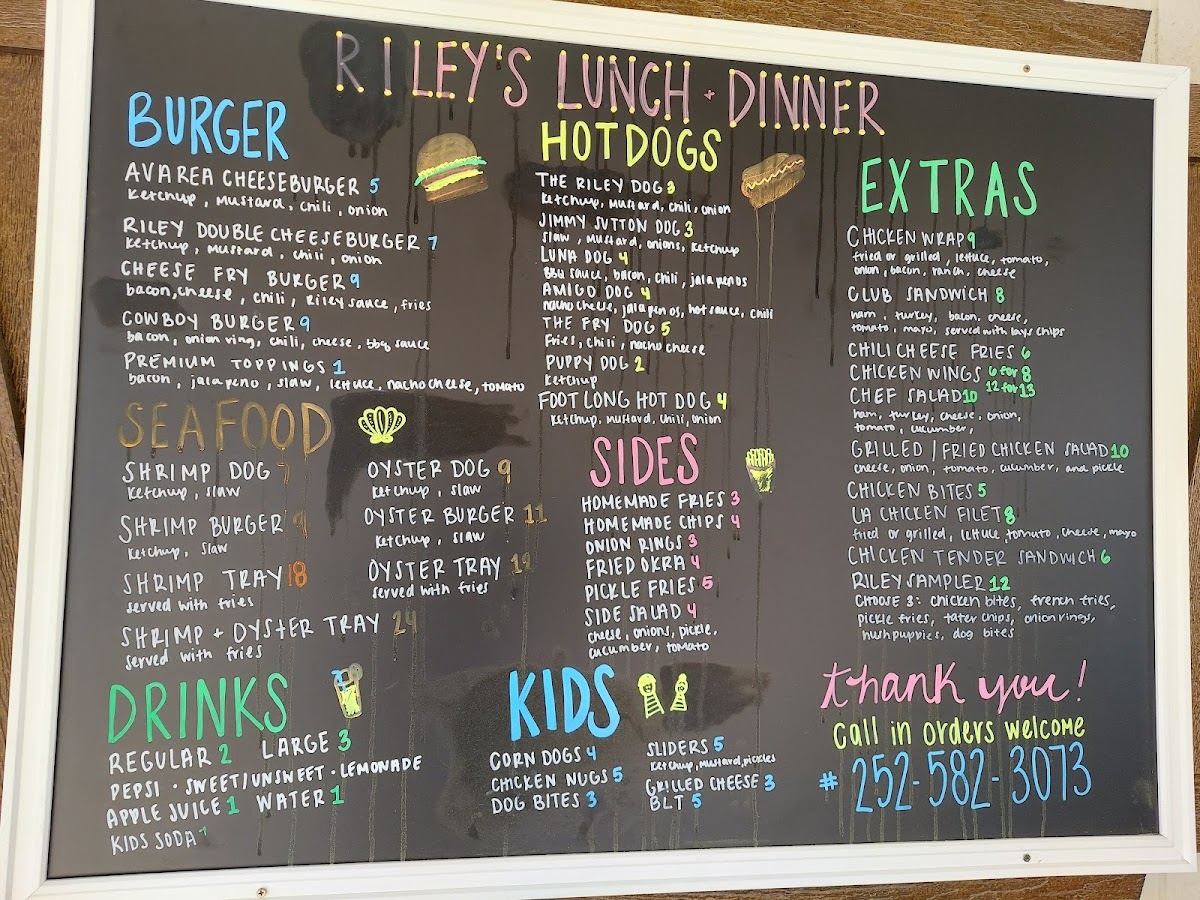 RILEY'S LUNCH + DINNER
BURGER
AVAREA CHEESEBURGER 5
Ketchup, mustard, chili, onion
RILEY DOUBLE CHEESEBURGER 7
Ketchup, mustard, chili, onion
CHEESE FRY BURGER 9
bacon, cheese, chili, Riley sauce, fries
COWBOY BURGER 9
bacon, onion ring, chili, cheese, bbq sauce
PREMIUM TOPPINGS 1
bacon, jalapeno, slaw, lettuce, nacho cheese, tomato
SEAFOOD
SHRIMP DOG 7
ketchup, slaw
SHRIMP BURGER 9
ketchup, slaw
SHRIMP TRAY 18
served with fries
SHRIMP + OYSTER TRAY 24
served with fries
OYSTER DOG 9
ketchup, slaw
OYSTER BURGER 11
ketchup, slaw
OYSTER TRAY
served with fries
HOTDOGS
THE RILEY DOG 3
Ketchup, mustard, chili, onion
JIMMY SUTTON DOG 3
slaw, mustard, onions, ketchup
LUNA DOG 4
BBQ sauce, bacon, chili, jalapenos
AMIGO DOG 4
nacho cheese, jalapenos, hot sauce, chili
THE FRY DOG 5
Fries, chili, nacho cheese
PUPPY DOG 2
ketchup
FOOT LONG HOT DOG 4
ketchup, mustard, chili, onion
SIDES
HOMEMADE FRIES 3
HOMEMADE CHIPS 4
ONION RINGS 3
FRIED OKRA 4
PICKLE FRIES 5
SIDE SALAD 4
cheese, onions, pickle,
cucumber, tomato
EXTRAS
CHICKEN WRAP 9
fried or grilled, lettuce, tomato,
onion, bacon, ranch, cheese
CLUB SANDWICH 8
ham, turkey, bacon, cheese,
tomato, mayo, served with lays chips
CHILI CHEESE FRIES 6
CHICKEN WINGS 6 for 8
12 for 13
CHEF SALAD 10
ham, turkey, cheese, onion,
tomato, cucumber,
GRILLED/FRIED CHICKEN SALAD 10
cheese, onion, tomato, cucumber, and pickle
CHICKEN BITES 5
LA CHICKEN FILET 8
fried or grilled, lettuce tomato, cheese, mayo
CHICKEN TENDER SANDWICH 6
RILEY SAMPLER 12
CHOOSE 3: chicken bites, french fries,
pickle fries, tater chips, onion rings,
hushpuppies, dog bites
DRINKS
REGULAR 2 LARGE 3
PEPSI · SWEET/UNSWEET · LEMONADE
APPLE JUICE 1 WATER 1
KIDS SODA 1
KIDS
CORN DOGS 4
CHICKEN NUGS 5
DOG BITES 3
SLIDERS 5
Ketchup, mustard, pickles
GRILLED CHEESE 3
BLT 5
thank you!
call in orders welcome
# 252-582-3073